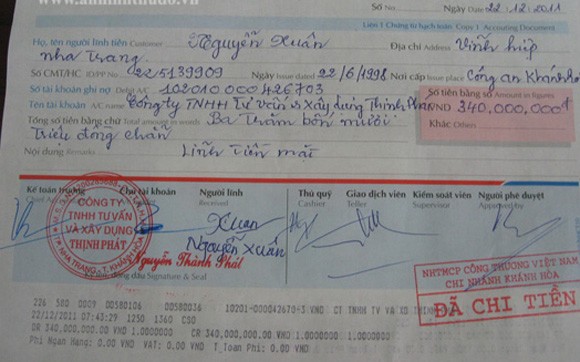 Số No
Ngày Date 22-12-2011
Liên 1 Chứng từ hạch toán Copy 1 Accounting Document
Họ, tên người lĩnh tiền Customer Nguyễn Xuân Địa chỉ Address Vĩnh hiệp
nha trang.
Số CMT/HC ID/PP No 225139909 Ngày Issue dated 22/6/1998 Nơi cấp Issue place Công an Khánh
Số tài khoản ghi nợ Debit A/C 102010000426703
Tên tài khoản A/C name Công ty TNHH Tư vấn & Xây dựng Thịnh Phát
Số tiền bằng số Amount in figures
VND 340,000,000đ
Khác Others
Tổng số tiền bằng chữ Total amount in words Ba trăm bốn mươi
Triệu đồng chẵn
Nội dung Remarks Lĩnh tiền mặt
Kế toán trưởng Chủ tài khoản Người lĩnh Thủ quỹ Giao dịch viên Kiểm soát viên Người phê duyệt
Received Cashier Teller Supervisor Approved by
CÔNG TY
TNHH TƯ VẤN
VÀ XÂY DỰNG
THỊNH PHÁT
TP. NHA TRANG - T. KHÁNH HÒA
Xuân
Nguyễn Xuân
Nguyễn Thành Phát
đóng dấu Signature & Seal
NHTMCP CÔNG THƯƠNG VIỆT NAM
CHI NHÁNH KHÁNH HÒA
ĐÃ CHI TIỀN
226 580 0009 00580106 00580036 10201-000042670-3 VND CT TNHH TV VA XD THINH
22/12/2011 07:43:29 1250 1360 CSO
DR 340,000,000.00 VND 1.0000000 CR 340,000,000.00 VND 1.0000000 1.0000000
Phi Ngan Hang: 0.00 VND VAT: 0.00 VND T_Toan Phi: 0.00 VND